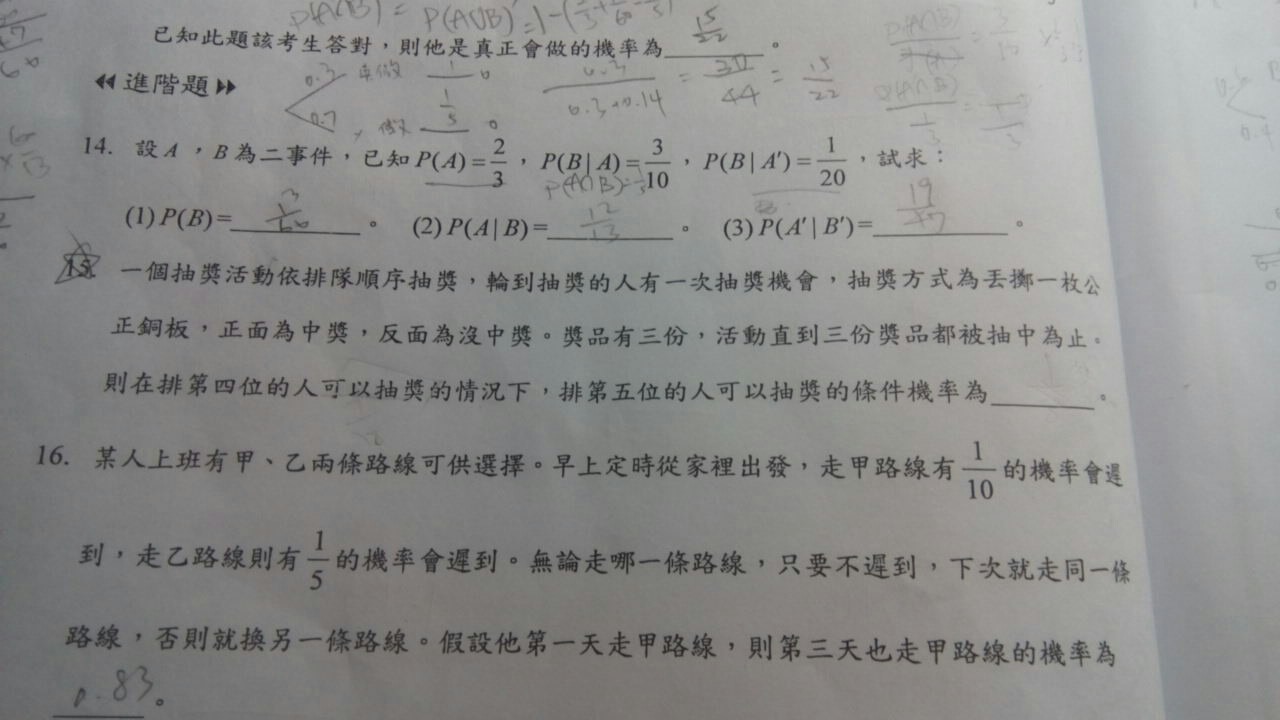 P(A∩B) = P(A∩B)' = 1-(
已知此題該考生答對，則他是真正會做的機率為 15/22 。
◀◀ 進階題 ▶▶
0.3 1
0.7 1/5
0.3 / 0.3+0.14 = 30/44 = 15/22
14. 設 A ，B 為二事件，已知 P(A) = 2/3 ，P(B | A) = 3/10 ，P(B | A′) = 1/20 ，試求：
P(A∩B)=
(1) P(B) = 。 (2) P(A | B) = 12/13 。 (3) P(A′ | B′) = 。
15. 一個抽獎活動依排隊順序抽獎，輪到抽獎的人有一次抽獎機會，抽獎方式為丟擲一枚公
正銅板，正面為中獎，反面為沒中獎。獎品有三份，活動直到三份獎品都被抽中為止。
則在排第四位的人可以抽獎的情況下，排第五位的人可以抽獎的條件機率為 。
16. 某人上班有甲、乙兩條路線可供選擇。早上定時從家裡出發，走甲路線有 1/10 的機率會遲
到，走乙路線則有 1/5 的機率會遲到。無論走哪一條路線，只要不遲到，下次就走同一條
路線，否則就換另一條路線。假設他第一天走甲路線，則第三天也走甲路線的機率為
0.83 。